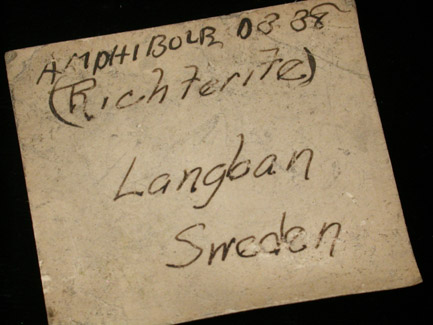 AMPHIBOLE D3 38
(Richterite)
Langban
Sweden